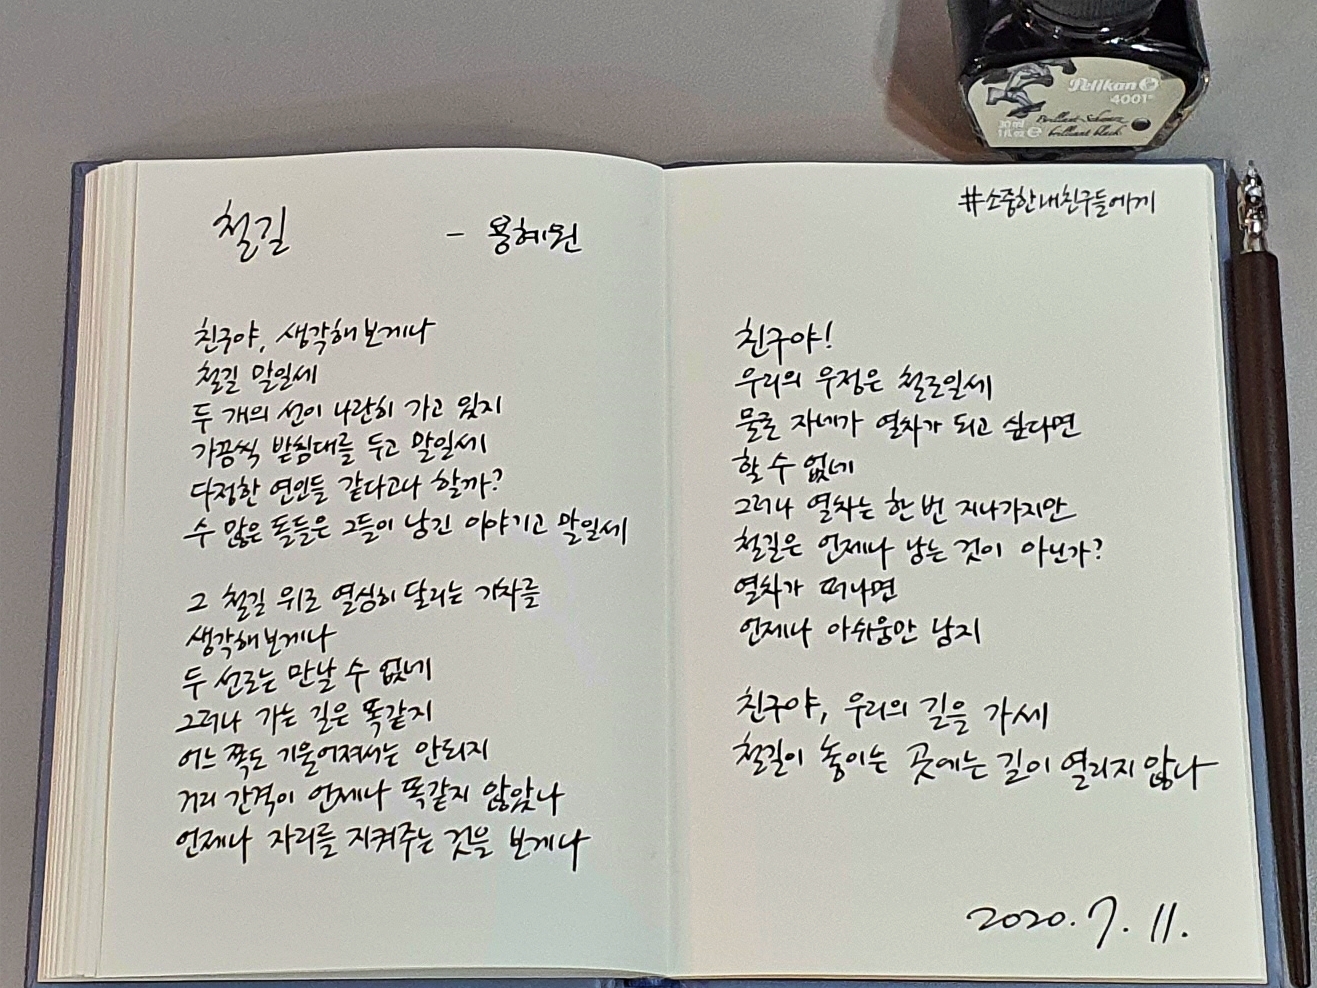 철길 - 용혜원
친구야, 생각해 보게나
철길 말일세
두 개의 선이 나란히 가고 있지
가끔씩 받침대를 두고 말일세
다정한 연인들 같다고나 할까?
수 많은 돌들은 그들이 남긴 이야기고 말일세
그 철길 위로 열심히 달리는 기차를
생각해 보게나
두 선로는 만날 수 없네
그러나 가는 길은 똑같지
어느 쪽도 기울어져서는 안되지
거리 간격이 언제나 똑같지 않았나
언제나 자리를 지켜주는 것을 보게나
#소중한내친구들에게
친구야!
우리의 우정은 철로일세
물론 자네가 열차가 되고 싶다면
할 수 없네
그러나 열차는 한 번 지나가지만
철길은 언제나 남는 것이 아닌가?
열차가 떠나면
언제나 아쉬움만 남지
친구야, 우리의 길을 가세
철길이 놓이는 곳에는 길이 열리지 않나
2020. 7. 11.
Pelikan
4001®
30 ml
1 fl. oz ℮
Brillant-Schwarz
brilliant black